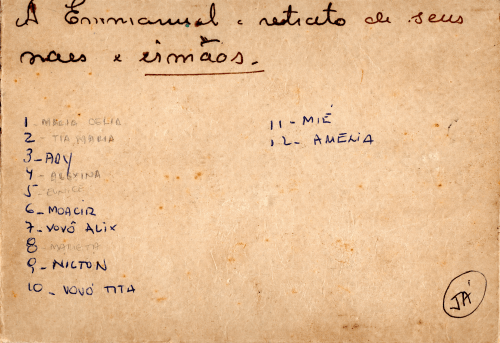 A Emmanuel o retrato de seus
paes e irmãos.
1 - MARIA CELIA
2 - TIA MARIA
3 - ARY
4 -
5 - EUNICE
6 - MOACIR
7 - VOVÔ ALIX
8 -
9 - NILTON
10 - VOVÓ TITA
11 - MIÉ
12 - AMELIA
JÁ